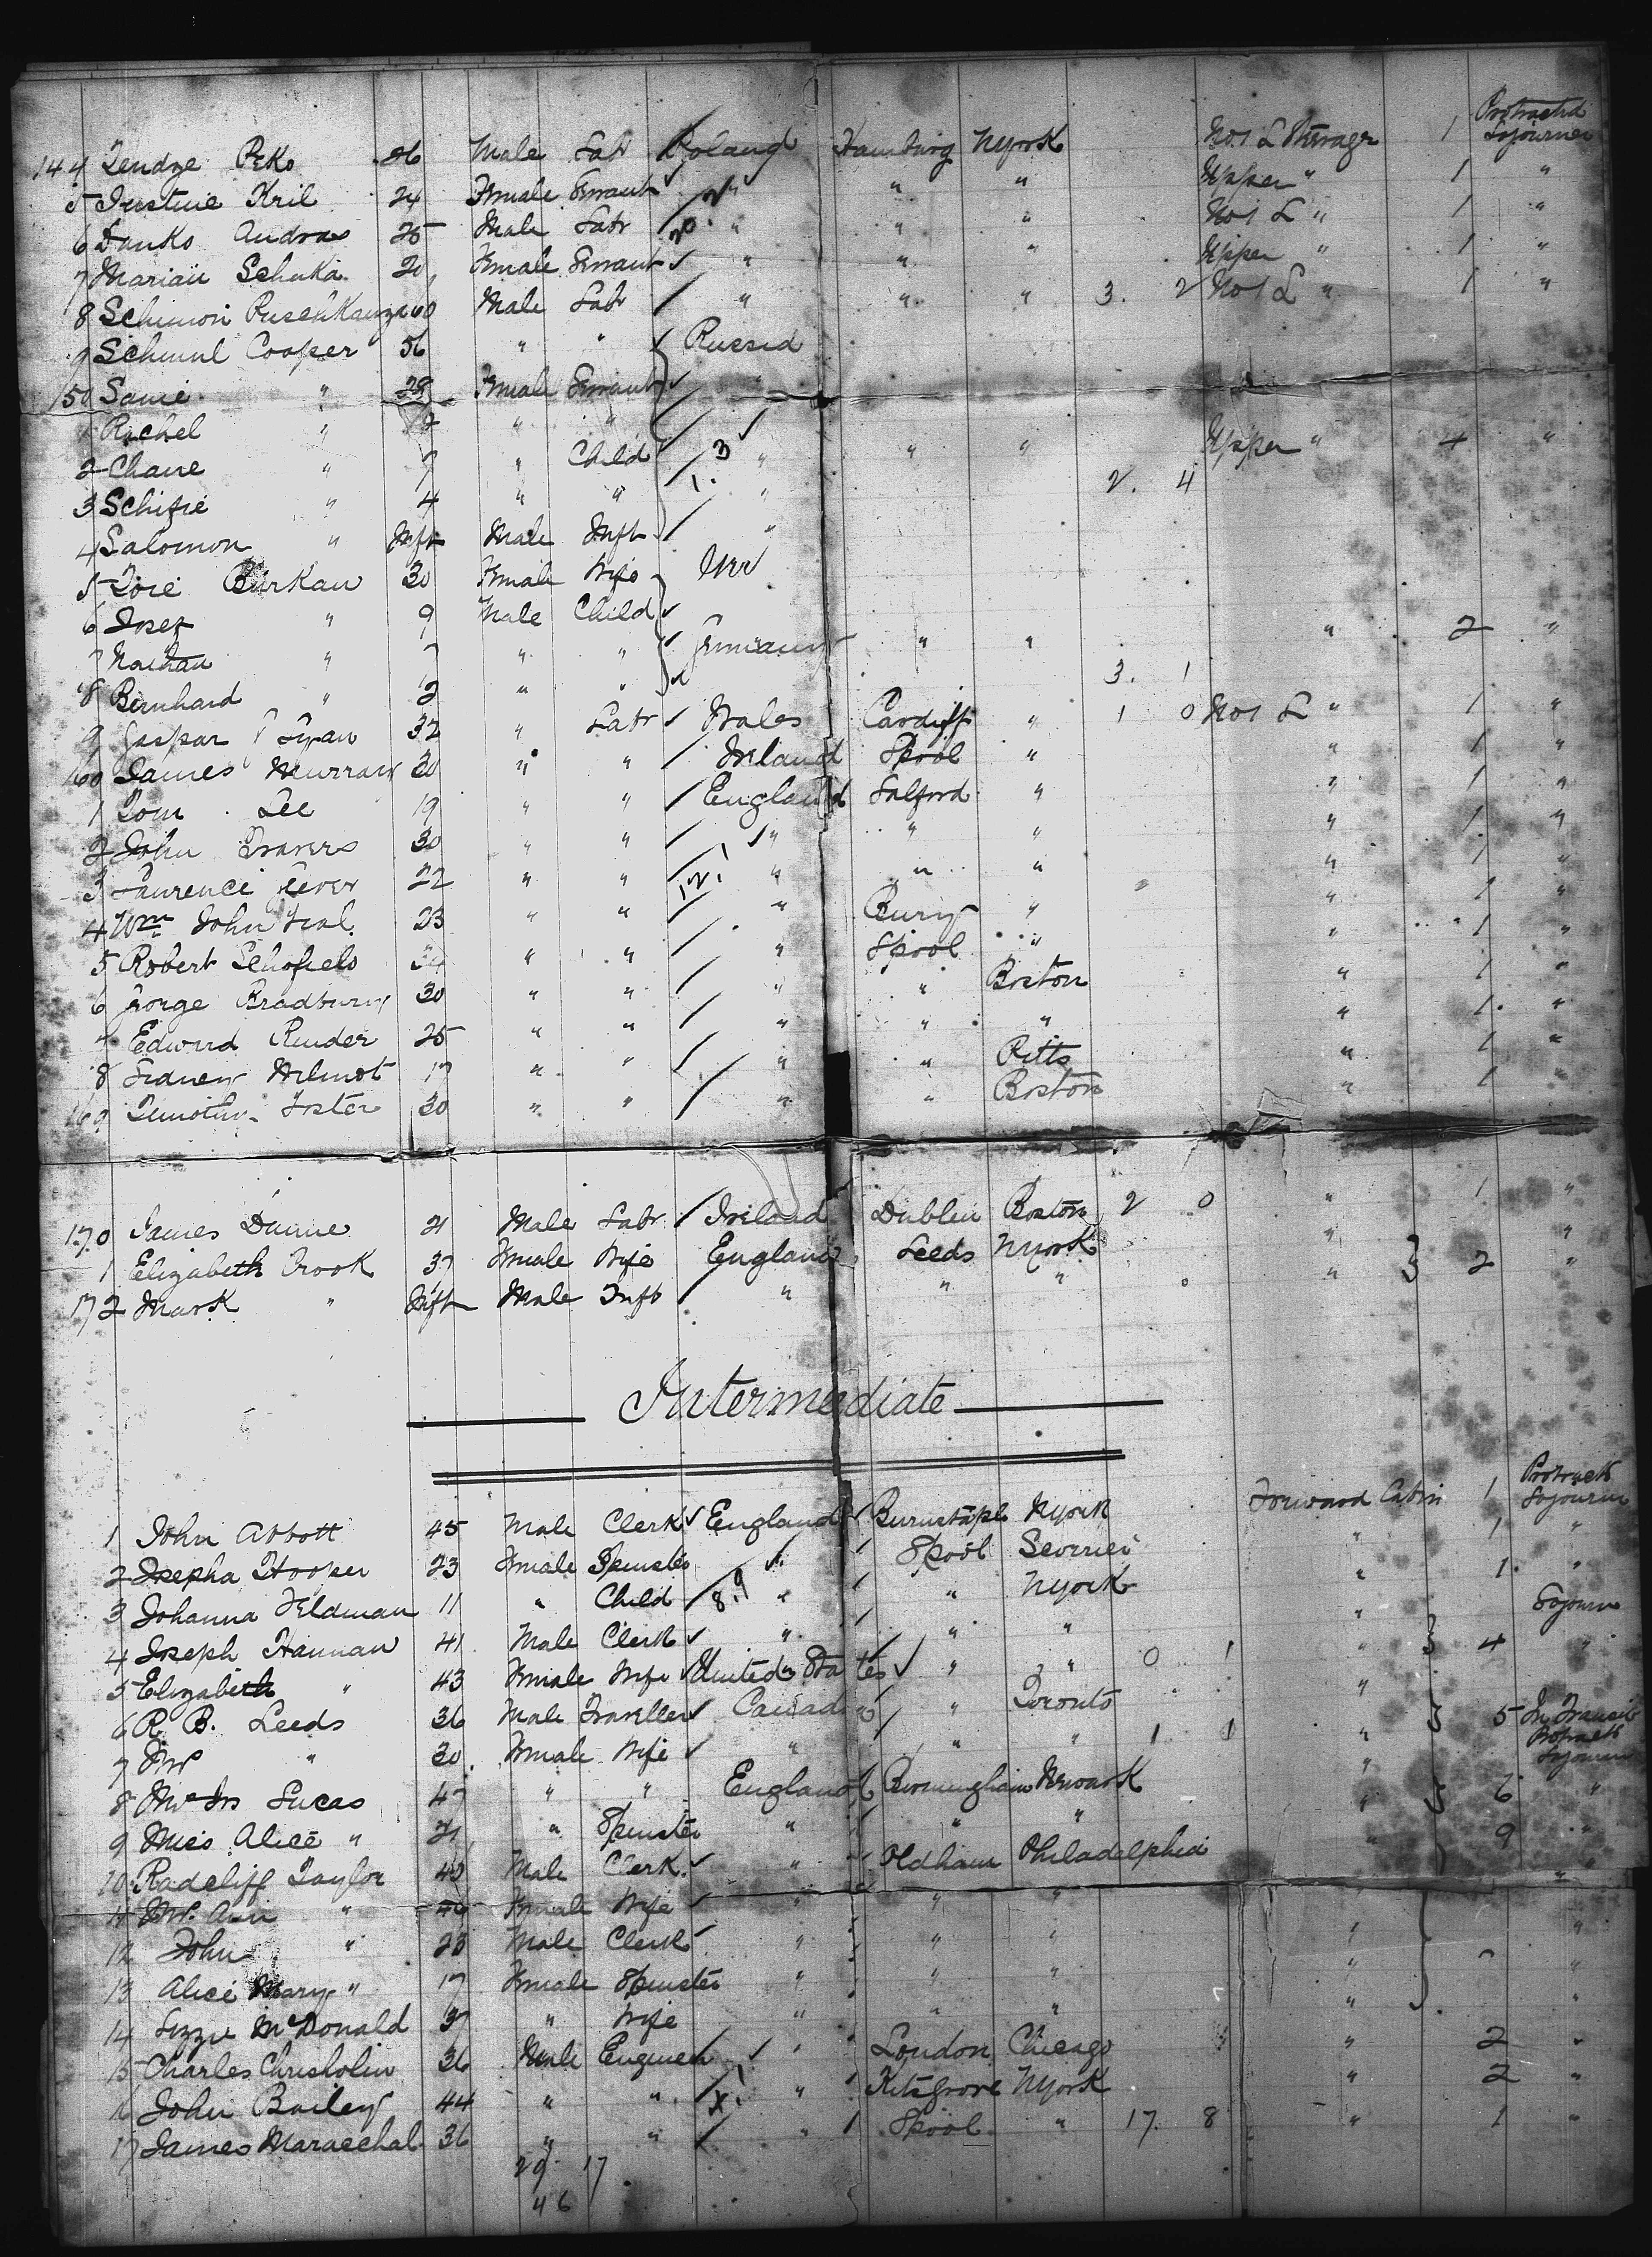 144 Lendze Peko 26 Male Labr Poland Hamburg NYork No 1 L Steerage 1 Protracted Sojourner
5 Justine Kril 24 Female Servant " " " Upper " 1 "
6 Danko Andras 25 Male Labr " " " No 1 L " 1 "
7 Marian Schuka 20 Female Servant " " " Upper " 1 "
8 Schimon 60 Male Labr " " " 3. 2 No 1 L " 1 "
9 Schmul Cooper 56 " " Russia
150 Samie " 28 Female Servant "
1 Rachel " " "
2 Chane " 7 " Child 3 " " " Upper " 4 "
3 Schifre " 4 " " 1. " 2. 4
4 Salomon " Inft Male Inft "
5 Burkan 30 Female Wife
6 Josef " 9 Male Child
7 Nathan " 7 " " Germany " " " 2 "
8 Bernhard " 2 " " 3. 1
9 Gaspar 32 " Labr Wales Cardiff " 1 0 No 1 L " 1 "
160 James Murray 30 " " Ireland Lpool " " 1 "
1 Tom Lee 19 " " England Salford " " 1 "
2 John Travers 30 " " " " " " 1 "
3 Laurence 22 " " " " " " 1 "
4 Wm John 23 " " " Bury " " 1 "
5 Robert Schofield 34 " " " Lpool " " 1 "
6 George Bradbury 30 " " " " Boston " 1 "
7 Edward Render 25 " " " " " " 1 "
8 Sidney Wilmot 17 " " " " Pitts " 1 "
169 Timothy Foster 30 " " " " Boston " 1 "
170 James Dunne 21 Male Labr Ireland Dublin Boston 2 0 " 1 "
1 Elizabeth Crook 37 Female Wife England Leeds NYork " "
172 Mark " Inft Male Inft " " " " 2 "
Intermediate
1 John Abbott 45 Male Clerk England Barnstaple NYork Forward Cabin 1 Protract Sojourn
2 Josepha Hooper 23 Female Spinster " Lpool " 1 "
3 Johanna Feldman 11 " Child 8. 9 " " NYork " 1 "
4 Joseph Hannan 41 Male Clerk " " " " Sojourn
5 Elizabeth " 43 Female Wife United States " " 0 1 " 4 "
6 R. B. Leeds 36 Male Traveller Canada " Toronto "
7 Mrs " 30 Female Wife " " " 1 1 " 5 In Transit
8 Lucas 47 " " England Birmingham Newark " Protract Sojourn
9 Miss Alice " 21 " Spinster " " " " 6 "
10 Radcliff Taylor Male Clerk " Oldham Philadelphia " 9 "
11 Mrs. Ann " Female Wife " " " "
12 John " 23 Male Clerk " " " " "
13 Alice Mary " 17 Female Spinster " " " " "
14 Lizzie McDonald 37 " Wife " " " " "
15 Charles Chrisholm 36 Male Engineer " London Chicago " 2 "
16 John Bailey 44 " " " Kitsgrove NYork " 2 "
17 James Maraechal 36 " " " Lpool " 17. 8 " 1 "
29 17
46